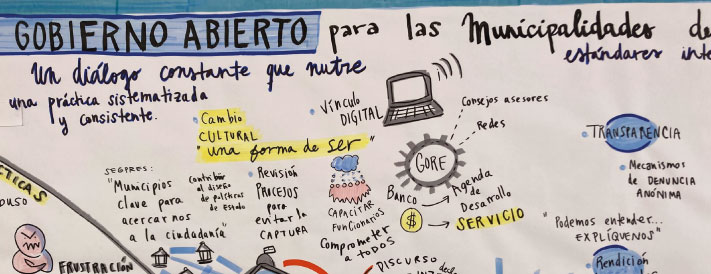 GOBIERNO ABIERTO para las Municipalidades de
estándares inte
Un diálogo constante que nutre
una práctica sistematizada
y consistente.
• Cambio
CULTURAL
"una forma de ser"
• Vínculo
DIGITAL
Consejos asesores
Redes
GORE
• TRANSPARENCIA
• Mecanismos
de DENUNCIA
ANÓNIMA
SEGPRES:
"Municipios
clave para
acercarnos
a la ciudadanía"
contribuir
al diseño
de políticas
de Estado
• Revisión
PROCESOS
para
evitar la
CAPTURA
CAPACITAR
FUNCIONARIOS
Comprometer
a TODOS
BANCO
$
Agenda
de
Desarrollo
SERVICIO
"Podemos entender...
EXPLÍQUENOS"
Rendición
CTICAS
PUSO
FRUSTRACIÓN
• DISCURSO